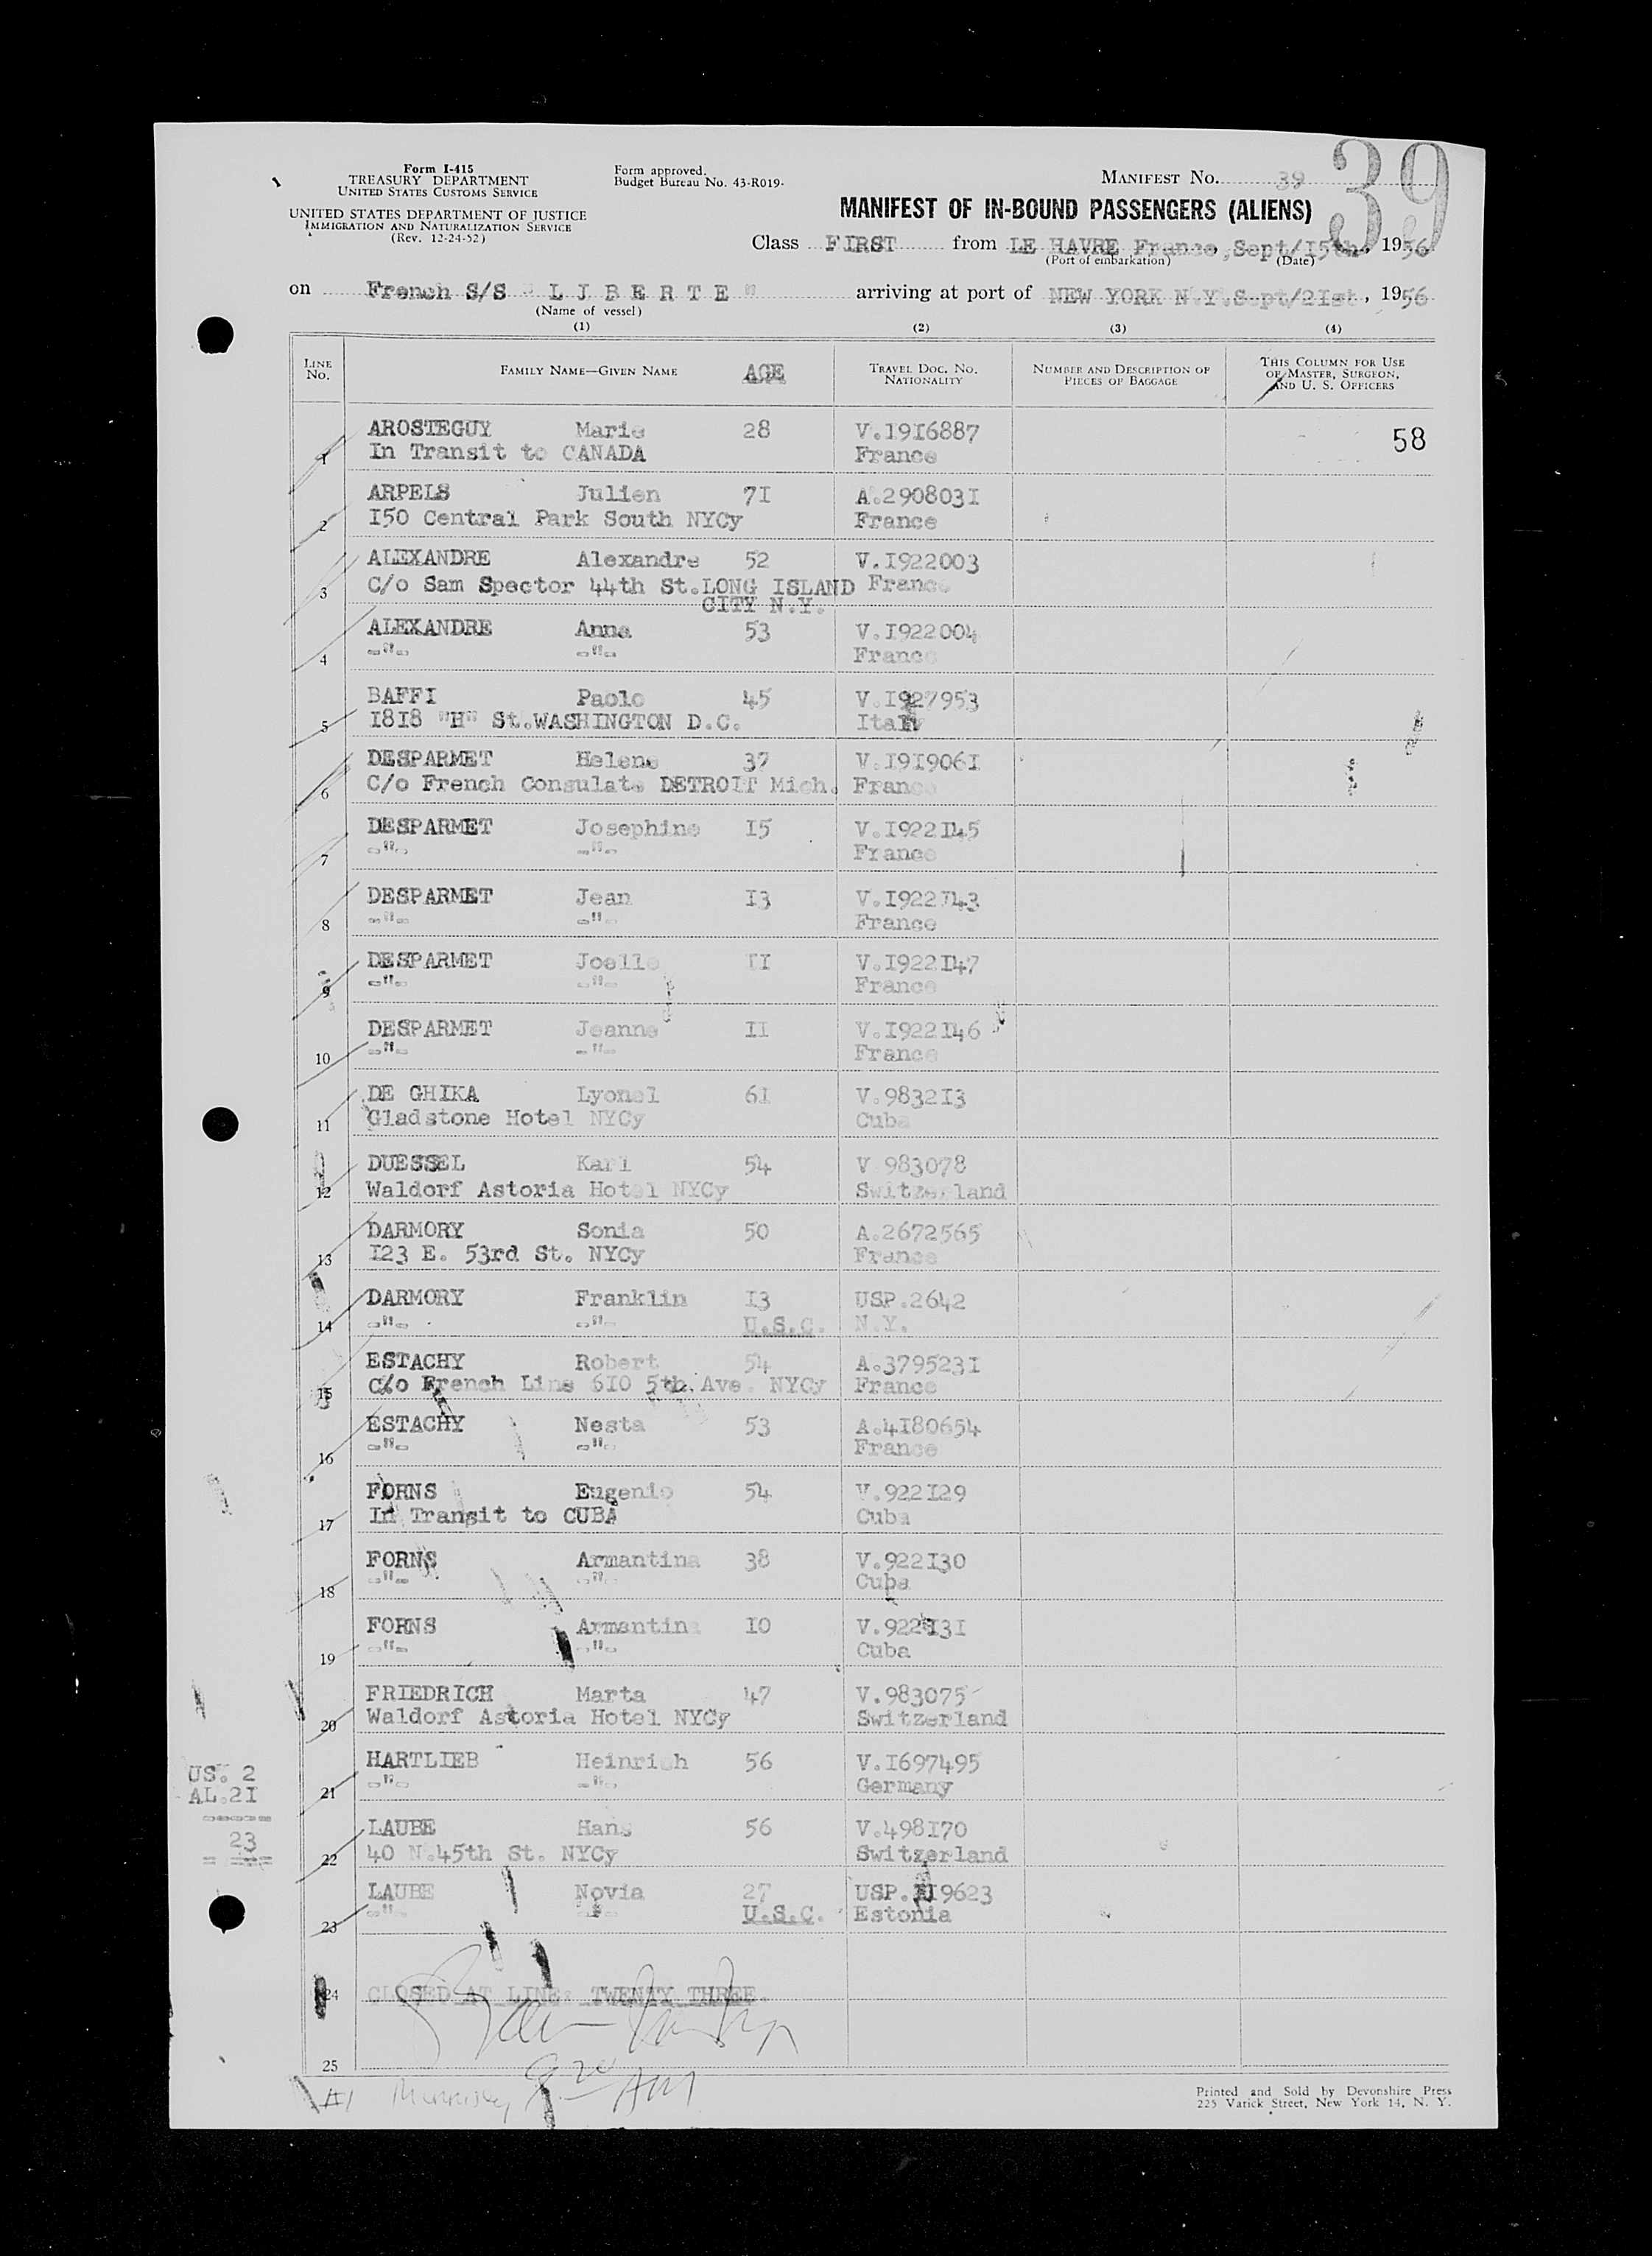 39
Form I-415
TREASURY DEPARTMENT
UNITED STATES CUSTOMS SERVICE
Form approved.
Budget Bureau No. 43-R019-
MANIFEST No. 39
UNITED STATES DEPARTMENT OF JUSTICE
IMMIGRATION AND NATURALIZATION SERVICE
(Rev. 12-24-52)
MANIFEST OF IN-BOUND PASSENGERS (ALIENS)
Class FIRST from LE HAVRE France, Sept/I5th, 1956
(Port of embarkation) (Date)
on French S/S "L I B E R T E" arriving at port of NEW YORK N.Y. Sept/2Ist, 1956
(Name of vessel)
(1) (2) (3) (4)
LINE No. FAMILY NAME—GIVEN NAME AGE TRAVEL DOC. No. NATIONALITY NUMBER AND DESCRIPTION OF PIECES OF BAGGAGE THIS COLUMN FOR USE OF MASTER, SURGEON, AND U. S. OFFICERS
AROSTEGUY Marie 28 V.19I6887 58
1 In Transit to CANADA France
ARPELS Julien 7I A.290803I
2 I50 Central Park South NYCy France
ALEXANDRE Alexandre 52 V.I922003
3 C/o Sam Spector 44th St.LONG ISLAND France
CITY N.Y.
ALEXANDRE Anna 53 V.I922004
4 -"- -"- France
BAFFI Paolo 45 V.I927953
5 I8I8 "H" St.WASHINGTON D.C. Italy
DESPARMET Helene 37 V.I9I906I
6 C/o French Consulate DETROIT Mich. France
DESPARMET Josephine I5 V.I922I45
7 -"- -"- France
DESPARMET Jean I3 V.I922I43
8 -"- -"- France
DESPARMET Joelle II V.I922I47
9 -"- -"- France
DESPARMET Jeanne II V.I922I46
10 -"- -"- France
DE GHIKA Lyonel 6I V.9832I3
11 Gladstone Hotel NYCy Cuba
DUESSEL Karl 54 V 983078
12 Waldorf Astoria Hotel NYCy Switzerland
DARMORY Sonia 50 A.2672565
13 I23 E. 53rd St. NYCy France
DARMORY Franklin I3 USP.2642
14 -"- -"- U.S.C. N.Y.
ESTACHY Robert 54 A.379523I
15 C/o French Line 6I0 5th. Ave. NYCy France
ESTACHY Nesta 53 A.4I80654
16 -"- -"- France
FORNS Eugenio 54 V.922I29
17 In Transit to CUBA Cuba
FORNS Armantina 38 V.922I30
18 -"- -"- Cuba
FORNS Armantina I0 V.922I3I
19 -"- -"- Cuba
FRIEDRICH Marta 47 V.983075
20 Waldorf Astoria Hotel NYCy Switzerland
HARTLIEB Heinrich 56 V.I697495
21 -"- -"- Germany
US. 2
AL.2I
23
LAUBE Hans 56 V.498I70
22 40 N.45th St. NYCy Switzerland
LAUBE Novia 27 USP.II9623
23 -"- -"- U.S.C. Estonia
24 CLOSED AT LINE: TWENTY THREE.
25
9 20 AM
Printed and Sold by Devonshire Press
225 Varick Street, New York 14, N. Y.